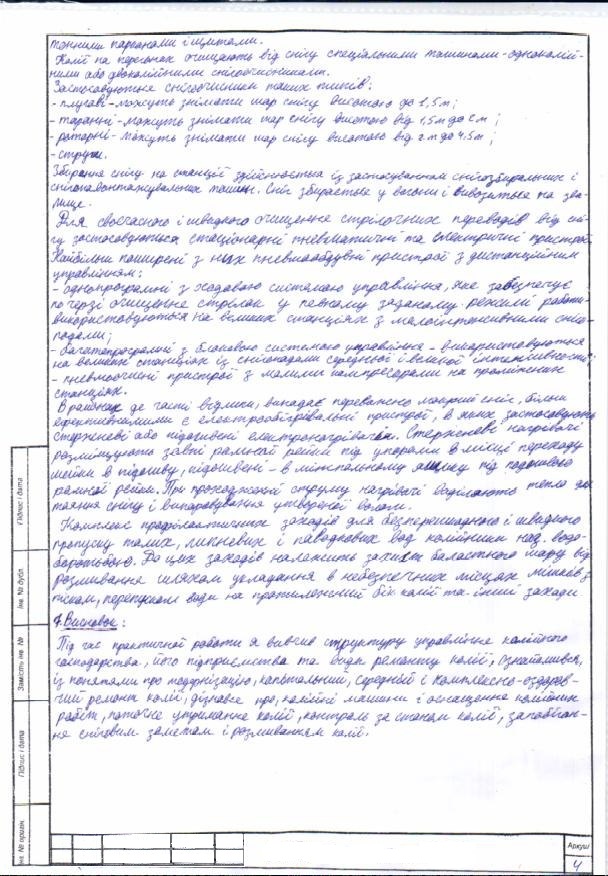 тонними парканами і щитами.
Колії на перегонах очищають від снігу спеціальними машинами-одноколій-
ними або двоколійними снігоочисниками.
Застосовуються снігоочисники таких типів:
- плугові - можуть знімати шар снігу висотою до 1,5 м;
- таранні - можуть знімати шар снігу висотою від 1,5 м до 2 м;
- роторні - можуть знімати шар снігу висотою від 2 м до 4,5 м;
- струги.
Збирання снігу на станції здійснюється із застосуванням снігозбиральних і
снігонавантажувальних машин. Сніг збирається у вагони і вивозиться на зва-
лище.
Для своєчасного і швидкого очищення стрілочних переводів від сні-
гу застосовуються стаціонарні пневматичні та електричні пристрої.
Найбільш поширені з них пневмообдувні пристрої з дистанційним
управлінням:
- однопрограмні з ходовою системою управління, яке забезпечує
по черзі очищення стрілок у певному заданому режимі роботи
використовуються на великих станціях з малоінтенсивними сніго-
падами;
- багатопрограмні з блоковою системою управління - використовуються
на великих станціях із снігопадами середньої і великої інтенсивності;
- пневмоочисні пристрої з малими компресорами на проміжних
станціях.
В районах де часті відлиги, випадає переважно мокрий сніг, більш
ефективними є електрообігрівальні пристрої, в яких застосовують
стержневі або підошвені електронагрівачі. Стержневі нагрівачі
розміщують зовні рамної рейки під упорами в місці переходу
шейки в підошву, підошвені - в міжшпальному ящику під подошвою
рамної рейки. При проходженні струму нагрівачі виділяють тепло для
танення снігу і випаровування утвореної вологи.
Комплекс профілактичних заходів для безперешкодного і швидкого
пропуску талих, ливневих і паводкових вод колійники наз. водо-
боротьбою. До цих заходів належить захист баластного шару від
розмивання шляхом укладання в небезпечних місцях мішків з
піском, перепуском води на протилежний бік колії та інші заходи
7. Висновок:
Під час практичної работи я вивчив структуру управління колійного
господарства, його підприємства та види ремонту колії, ознайомився
із поняттями про модернізацію, капітальний, середній і комплексно-оздоров-
чий ремонт колії, дізнався про, колійні машини і оснащення колійних
работ, поточне утримання колії, контроль за станом колії, запобіган-
ня сніговим заметам і розмиванням колії.
Підпис і дата
Інв. № дубл.
Замість інв. №
Підпис і дата
Інв. № оригін.
Аркуш
4